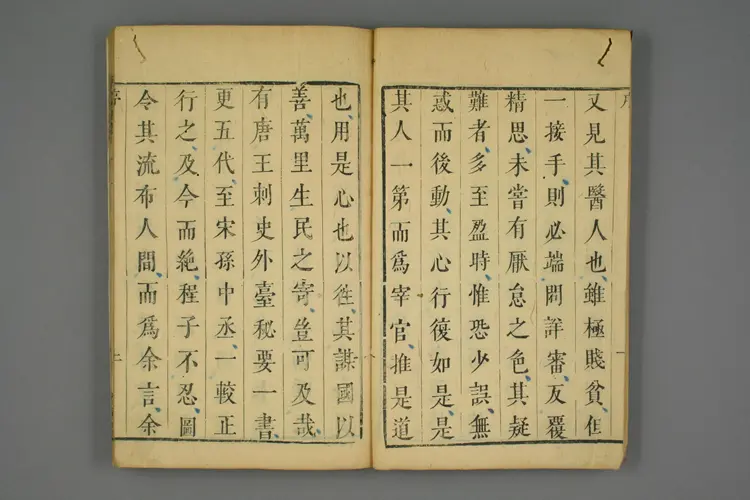 序
又見其醫人也雖極賤貧但
一接手則必端問詳審反覆
精思未嘗有厭怠之色其疑
難者多至盈時惟恐少誤無
惑而後動其心行復如是是
其人一第而爲宰官推是道
也用是心也以徃其謀國以
善萬里生民之寄豈可及哉
有唐王刺史外臺秘要一書
更五代至宋孫中丞一較正
行之及今而絶程子不忍圖
令其流布人間而爲余言余
序